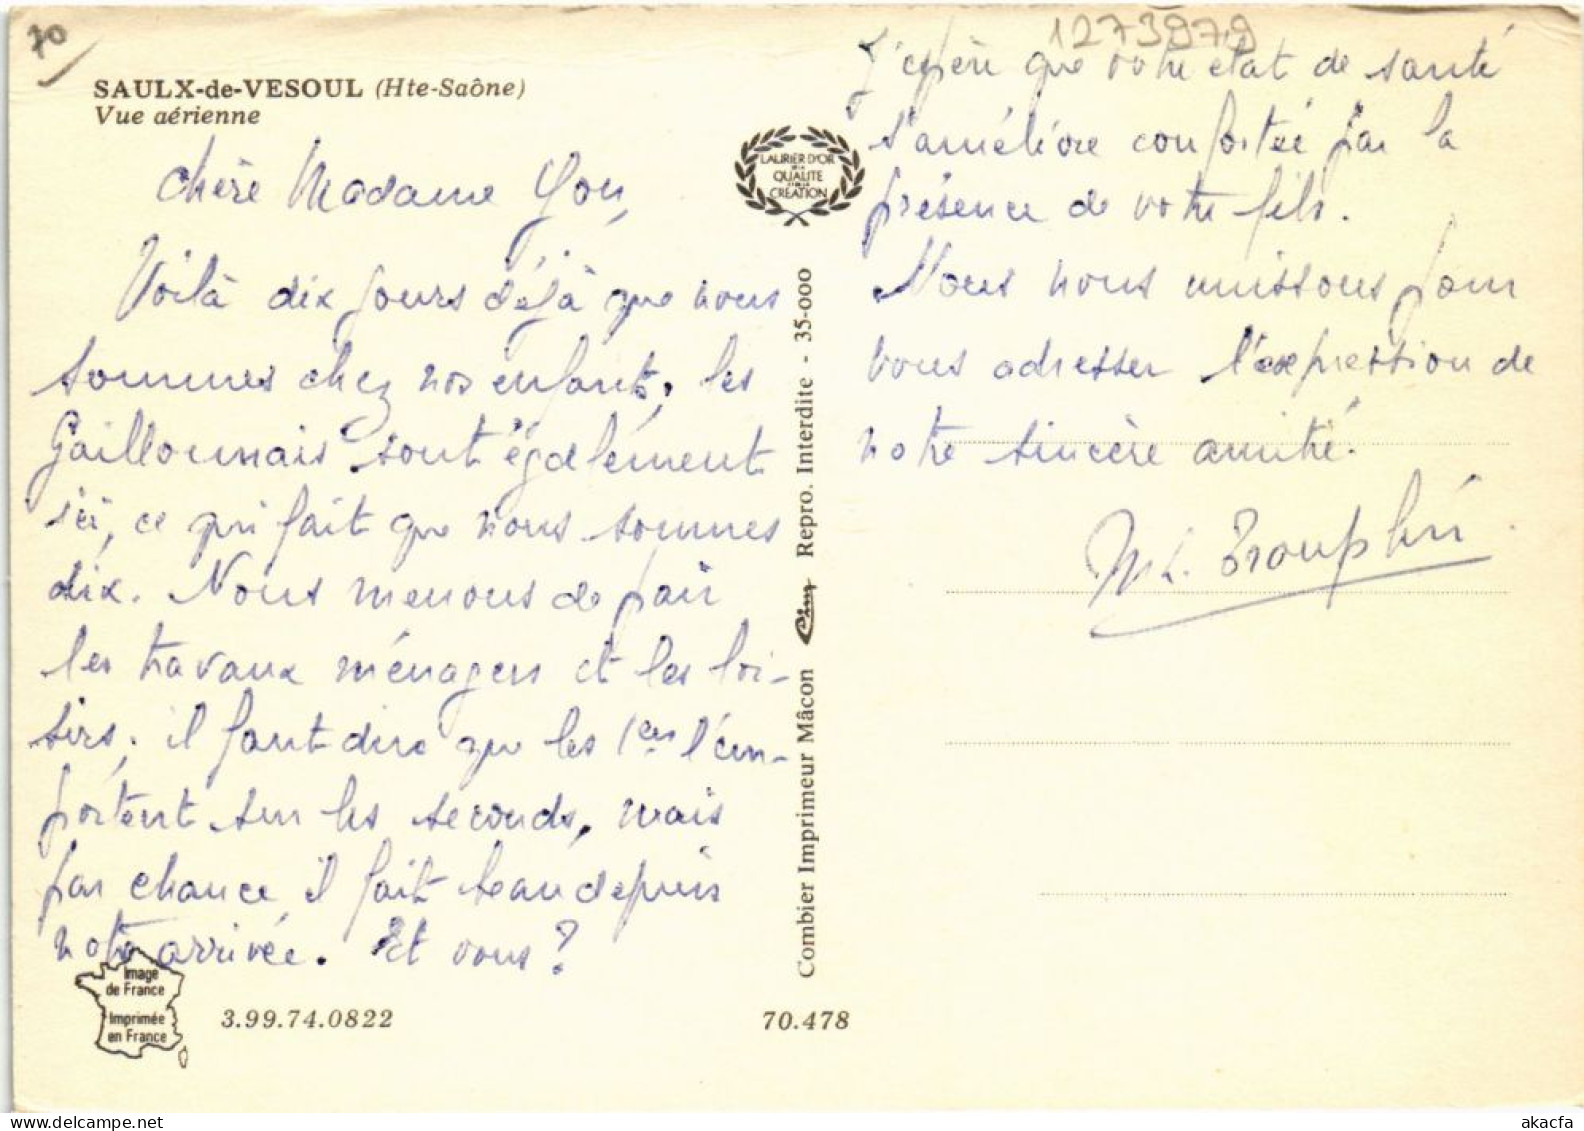 70
1273979
SAULX-de-VESOUL (Hte-Saône)
Vue aérienne
Chère Madame You,
Voilà dix jours déjà que nous
sommes chez nos enfants, les
Gaillonnais sont également
ici, ce qui fait que nous sommes
dix. Nous menons de pair
les travaux ménagers et les loi-
sirs, il faut dire que les 1ers l'em-
portent sur les seconds, mais
par chance il fait beau depuis
notre arrivée. Et vous?
Image
de France
Imprimée
en France
3.99.74.0822
70.478
LAURIER D'OR
DE LA
QUALITE
ET DE LA
CREATION
Combier Imprimeur Mâcon Cim Repro. Interdite - 35-000
J'espère que votre état de santé
s'améliore confortée par la
présence de votre fils.
Nous nous unissons pour
vous adresser l'expression de
notre sincère amitié.
M.L.
delcampe.net
akacfa